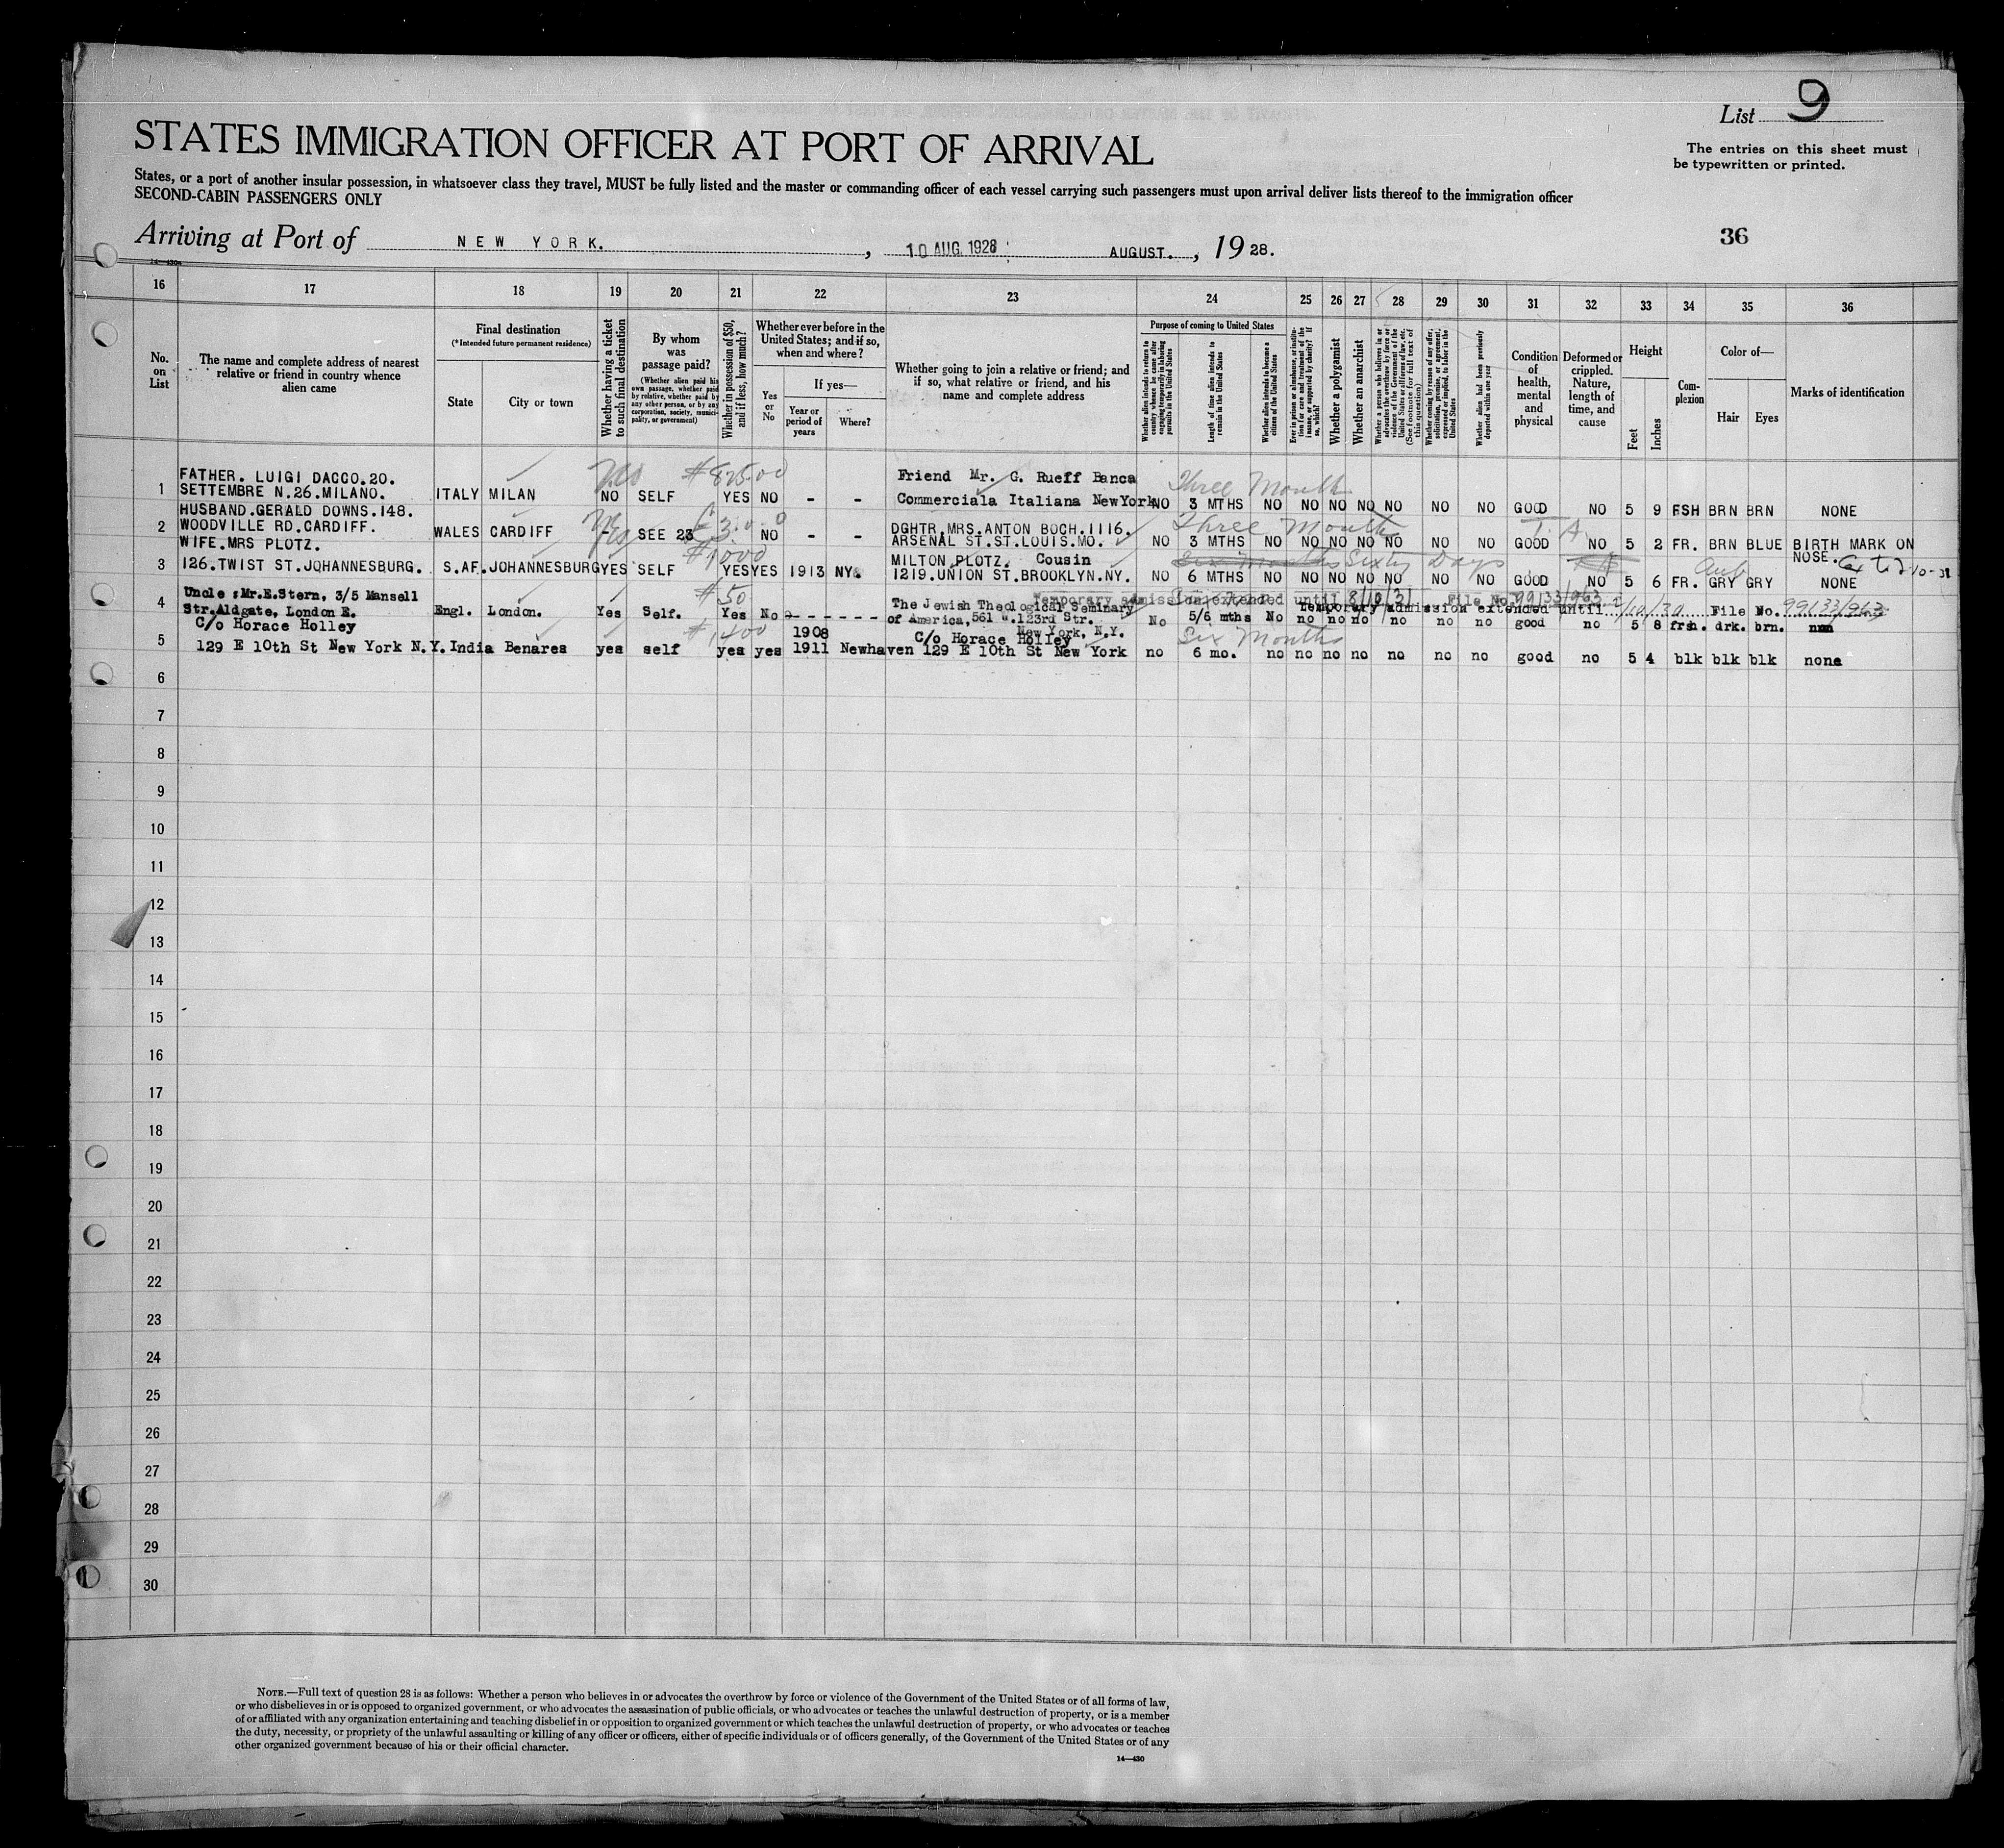 List 9
The entries on this sheet must
be typewritten or printed.
STATES IMMIGRATION OFFICER AT PORT OF ARRIVAL
States, or a port of another insular possession, in whatsoever class they travel, MUST be fully listed and the master or commanding officer of each vessel carrying such passengers must upon arrival deliver lists thereof to the immigration officer
SECOND-CABIN PASSENGERS ONLY
Arriving at Port of NEW YORK. , 10 AUG. 1928 AUGUST. , 1928.
36
14—430
16 17 18 19 20 21 22 23 24 25 26 27 28 29 30 31 32 33 34 35 36
No. on List
The name and complete address of nearest
relative or friend in country whence
alien came
Final destination
(*Intended future permanent residence)
State
City or town
Whether having a ticket
to such final destination
By whom
was
passage paid?
(Whether alien paid his
own passage, whether paid
by relative, whether paid by
any other person, or by any
corporation, society, munici-
pality, or government)
Whether in possession of $50,
and if less, how much?
Whether ever before in the
United States; and if so,
when and where?
Yes
or
No
If yes—
Year or
period of
years
Where?
Whether going to join a relative or friend; and
if so, what relative or friend, and his
name and complete address
Purpose of coming to United States
Whether alien intends to return to
country whence he came after
engaging temporarily in laboring
pursuits in the United States
Length of time alien intends to
remain in the United States
Whether alien intends to become a
citizen of the United States
Ever in prison or almshouse, or institu-
tion for care and treatment of the
insane, or supported by charity? If
so, which?
Whether a polygamist
Whether an anarchist
Whether a person who believes in or
advocates the overthrow by force or
violence of the Government of the
United States or all forms of law, etc.
(See footnote for full text of
this question)
Whether coming by reason of any offer,
solicitation, promise, or agreement,
expressed or implied, to labor in the
United States
Whether alien had been previously
deported within one year
Condition
of
health,
mental
and
physical
Deformed or
crippled.
Nature,
length of
time, and
cause
Height
Feet
Inches
Com-
plexion
Color of—
Hair
Eyes
Marks of identification
FATHER. LUIGI DACCO.20. Yes #825.00 Friend Mr. G. Rueff Banca Three Months
1 SETTEMBRE N.26.MILANO. ITALY MILAN NO SELF YES NO - - Commerciala Italiana NewYork NO 3 MTHS NO NO NO NO NO NO NO GOOD NO 5 9 FSH BRN BRN NONE
HUSBAND.GERALD DOWNS.148.
2 WOODVILLE RD.CARDIFF. WALES CARDIFF Yes SEE 23 NO - - DGHTR.MRS.ANTON BOCH.1116. Three Months
ARSENAL ST.ST.LOUIS.MO. NO 3 MTHS NO NO NO NO NO NO NO GOOD NO 5 2 FR. BRN BLUE BIRTH MARK ON
NOSE.
WIFE.MRS PLOTZ. #1000 MILTON PLOTZ. Cousin Six Months Sixty Days
3 126.TWIST ST.JOHANNESBURG. S.AF.JOHANNESBURG YES SELF YES YES 1913 NY. 1219.UNION ST.BROOKLYN.NY. NO 6 MTHS NO NO NO NO NO NO NO GOOD NO 5 6 FR. GRY GRY NONE
Temporary admission extended until 8/10/31 File No. 99133/963
Uncle :Mr.E.Stern, 3/5 Mansell #50 The Jewish Theological Seminary Temporary admission extended until File No. 99133/963
4 Str.Aldgate, London E. Engl. London. Yes Self. Yes No - - - - - - of America,561 W.123rd Str. No 5/6 mths No no no no no no no good no 5 8 frsh. drk. brn.
New York, N.Y.
C/o Horace Holley #1400 1908 C/o Horace Holley Six Months
5 129 E 10th St New York N.Y. India Benares yes self yes yes 1911 Newhaven 129 E 10th St New York no 6 mo. no no no no no no no good no 5 4 blk blk blk none
6
7
8
9
10
11
12
13
14
15
16
17
18
19
20
21
22
23
24
25
26
27
28
29
30
NOTE.—Full text of question 28 is as follows: Whether a person who believes in or advocates the overthrow by force or violence of the Government of the United States or of all forms of law,
or who disbelieves in or is opposed to organized government, or who advocates the assassination of public officials, or who advocates or teaches the unlawful destruction of property, or is a member
of or affiliated with any organization entertaining and teaching disbelief in or opposition to organized government or which teaches the unlawful destruction of property, or who advocates or teaches
the duty, necessity, or propriety of the unlawful assaulting or killing of any officer or officers, either of specific individuals or of officers generally, of the Government of the United States or of any
other organized government because of his or their official character.
14—430